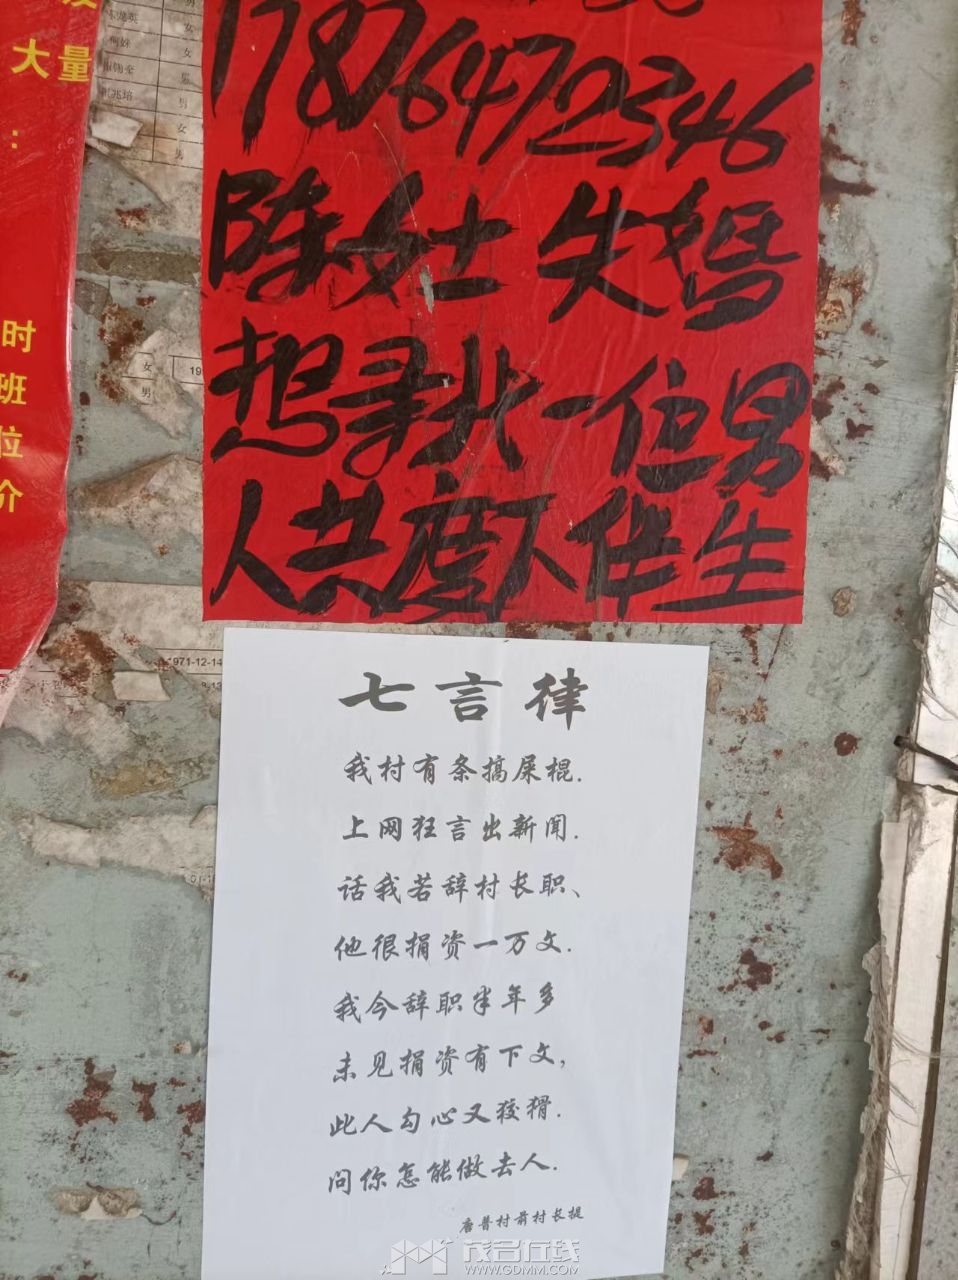 大量
:
时
班
位
介
女
男
女
男
女
男
17876472546
陈女士 失婚
想寻找一位男
人共度下伴生
女
男
19
1971-12-14
七言律
我村有条搞屎棍.
上网狂言出新闻.
话我若辞村长职、
他很捐资一万文.
我今辞职半年多
未见捐资有下文,
此人勾心又狡猾.
问你怎能做去人.
唐普村前村长提
茂名在线
WWW.GDMM.COM